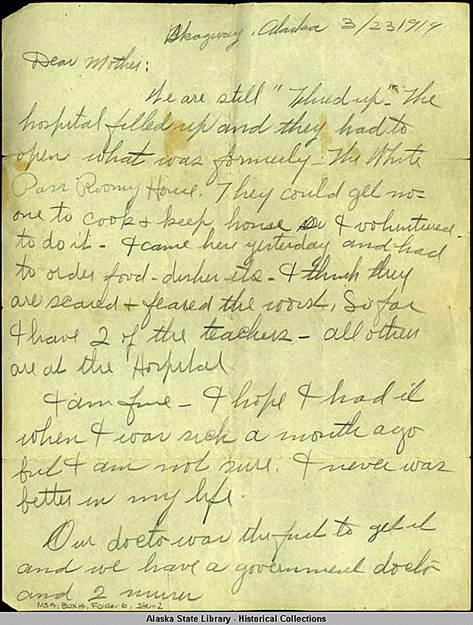 Skagway, Alaska 3/23 1919
Dear Mother:
We are still "Flued up" The
hospital filled up and they had to
open what was formerly - The White
Pass Roomy House. They could get no-
one to cook & keep house so I volunteered
to do it - I came here yesterday and had
to order food - dishes etc - I think they
are scared & feared the work. So far
I have 2 of the teachers - all others
are at the Hospital
I am fine - I hope I had it
when I was sick a month ago
but I am not sure. I never was
better in my life.
Our doctor was the first to get it
and we have a government doctor
and 2 nurses
MS4, Box14, Folder 6, Item 2
Alaska State Library - Historical Collections